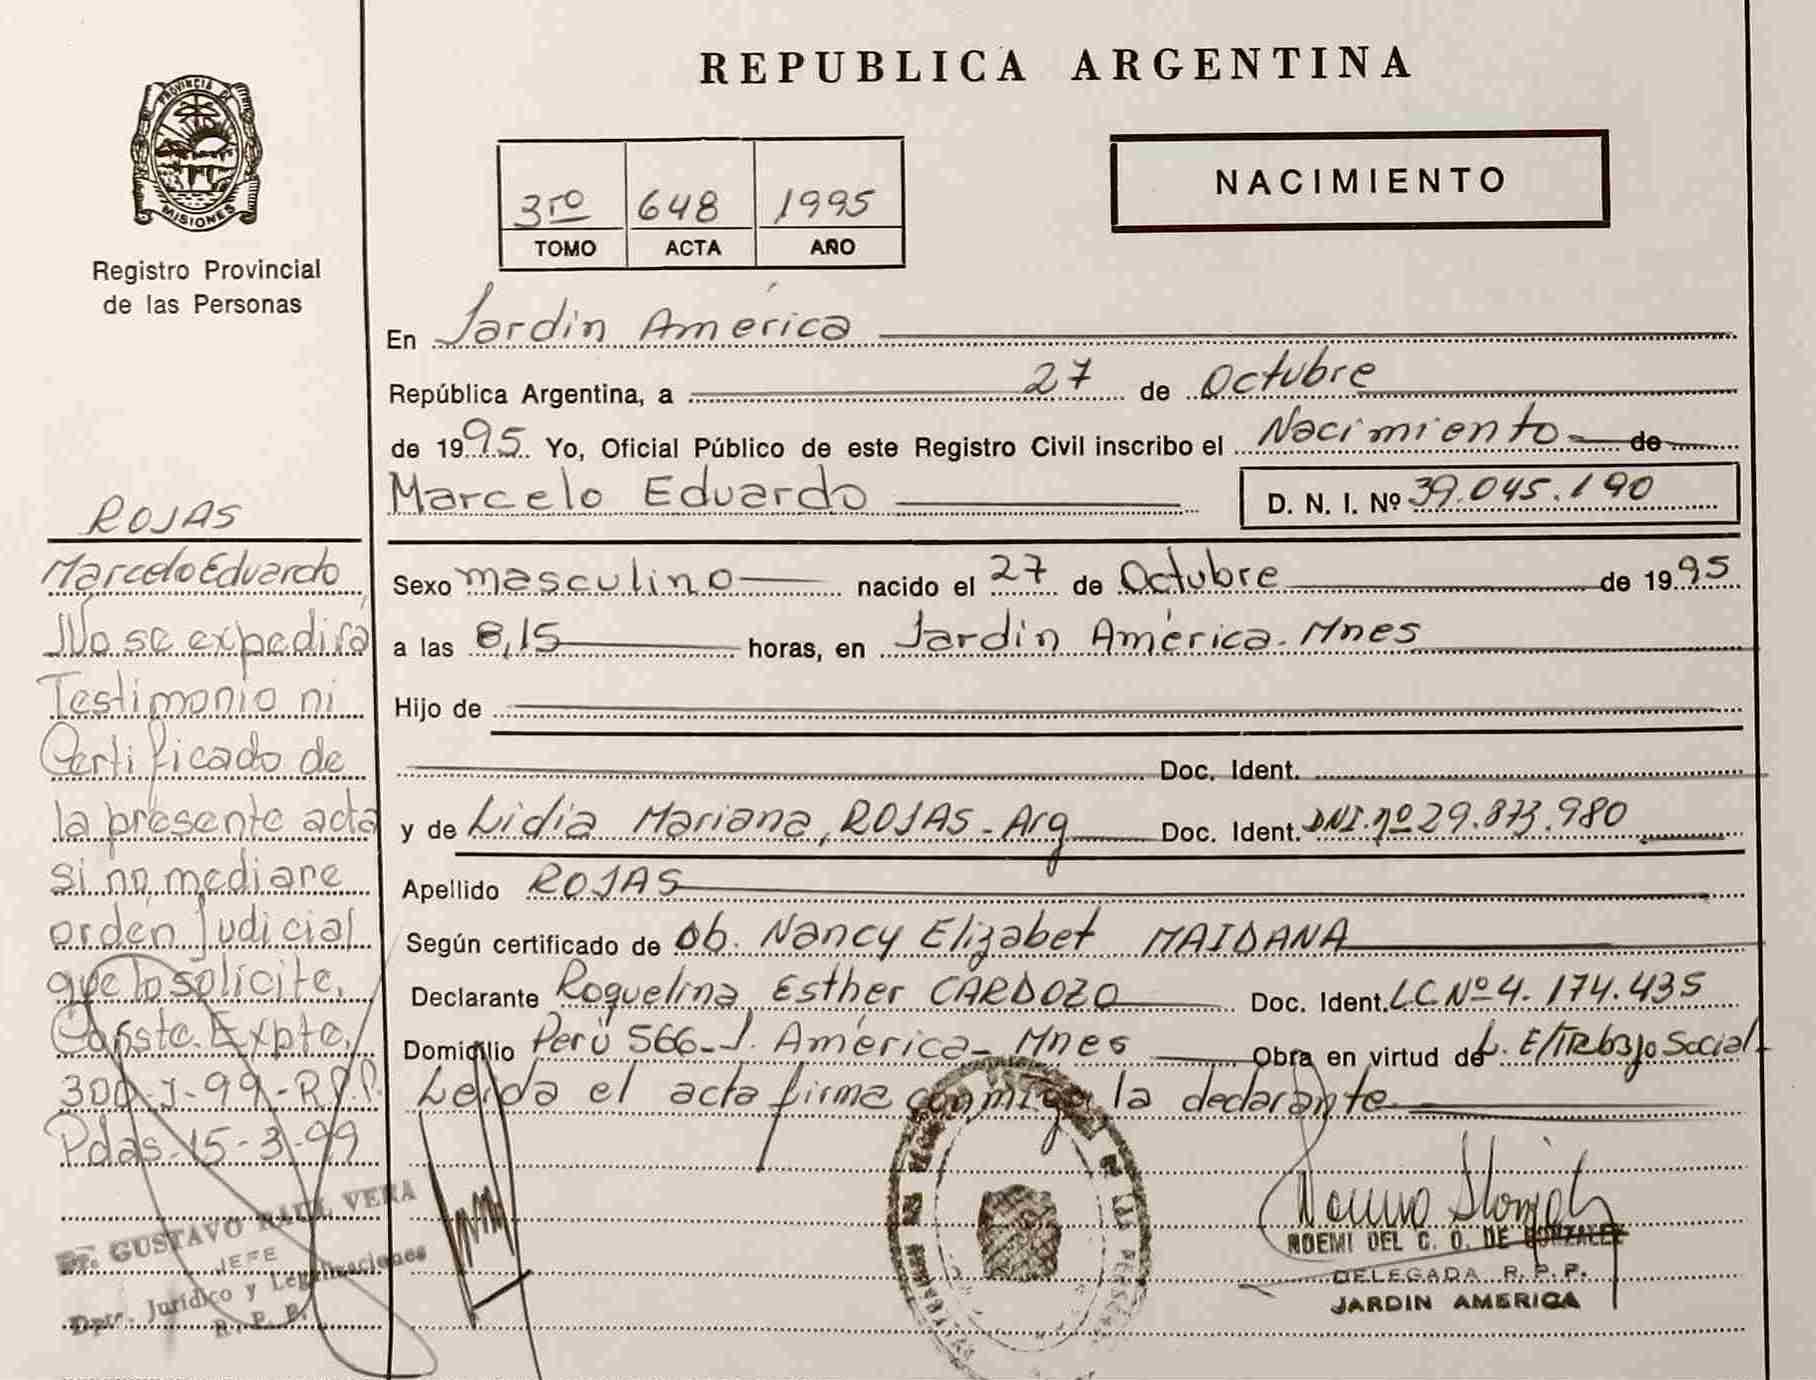 REPUBLICA ARGENTINA
PROVINCIA DE
MISIONES
Registro Provincial
de las Personas
3ro 648 1995
TOMO ACTA AÑO
NACIMIENTO
En Jardin América
República Argentina, a 27 de Octubre
de 1995. Yo, Oficial Público de este Registro Civil inscribo el Nacimiento de
Marcelo Eduardo D. N. I. Nº 39.045.190
Sexo masculino nacido el 27 de Octubre de 1995
a las 8,15 horas, en Jardin América. Mnes
Hijo de
Doc. Ident.
y de Lidia Mariana, ROJAS - Arg Doc. Ident. DNI. nº 29.873.980
Apellido ROJAS
Según certificado de Ob. Nancy Elizabet MAIDANA
Declarante Roquelina Esther CARDOZO Doc. Ident. LC Nº 4.174.435
Domicilio Perú 566 - J. América - Mnes Obra en virtud de L. E/Trabajo Social
Leída el acta firma conmigo la declarante
ROJAS
Marcelo Eduardo
No se expedirá
Testimonio ni
Certificado de
la presente acta
si no mediare
orden judicial
que lo solicite.
Conste. Expte.
300-J-99-R.P.P.
Pdas. 15-3-99
Dr. GUSTAVO RAUL VERA
JEFE
Dpto. Jurídico y Legalizaciones
R. P. P.
NOEMI DEL C. O. DE GONZALEZ
DELEGADA R. P. P.
JARDIN AMERICA